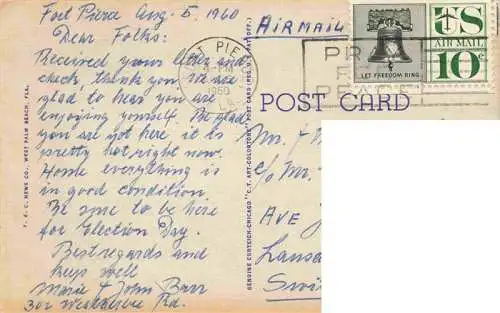 Fort Pierce Aug. 5, 1960
Dear Folks:
Received your letter and
check, thank you. We are
glad to hear you are
enjoying yourself. Be glad
you are not here, it is
pretty hot right now.
Home everything is
in good condition
Be sure to be here
for Election Day.
Best regards and
keep well
Marie & John Barr
Rd.
AIRMAIL
PIE
PM
1960
LET FREEDOM RING
US
AIR MAIL
10¢
PR
POST CARD
Mr. &
c/o Mr.
Ave
Lausa
Swi
F. E. C. NEWS CO., WEST PALM BEACH, FLA.
GENUINE CURTEICH-CHICAGO "C.T. ART-COLORTONE" POST CARD (REG. U.S. PAT. OFF.)